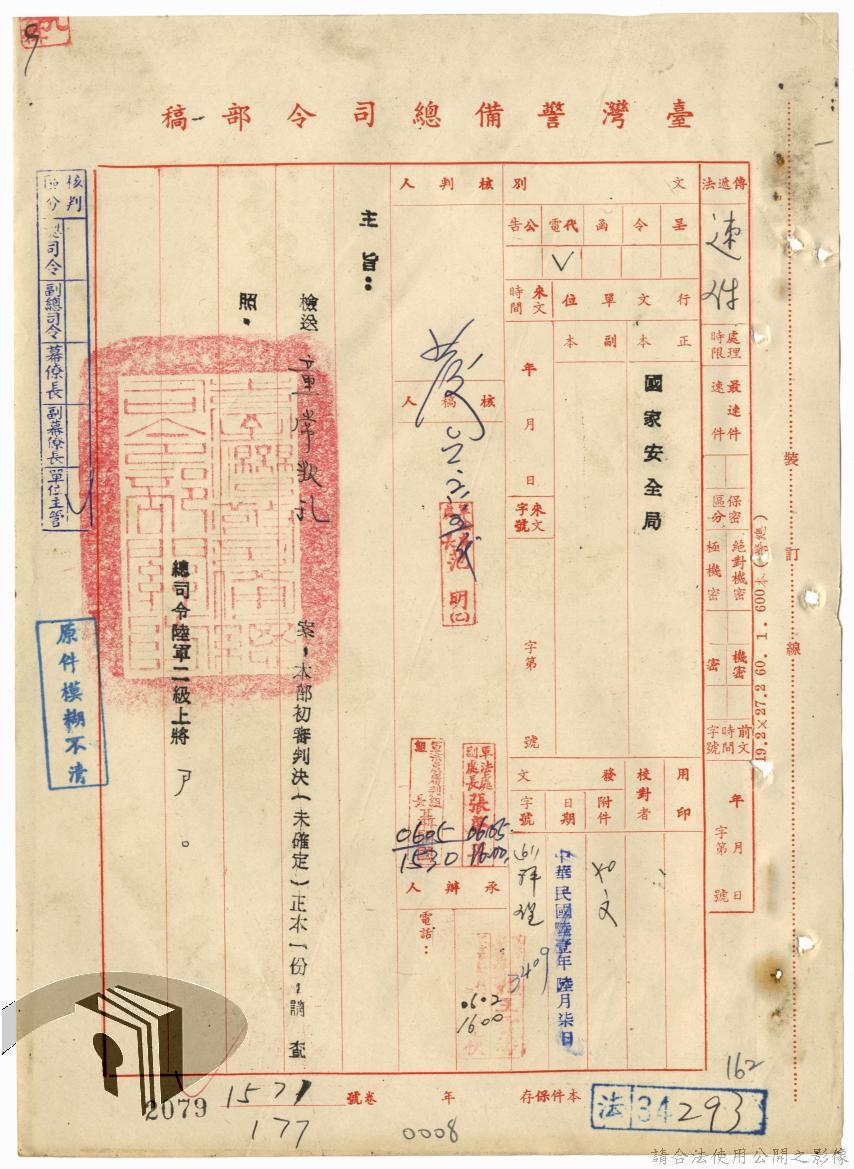 臺灣警備總司令部稿
傳遞法
速件
處理時限
最速件
速件
保密區分
絕對機密
極機密
機密
密
前文時間字號
年月日
字第
號
文別
呈
令
函
代電
公告
V
行文單位
正本
副本
國家安全局
來文時間
年月日
來文字號
字第
號
用印
校對者
發文
附件
如文
日期
中華民國陸壹年陸月柒日
字號
3409
核判人
核稿人
范明
軍法處副處長張
0605
1600
0605
1530
承辦人
電話：
0602
1600
主旨：
檢送
案，本部初審判決（未確定）正本一份，請查
照。
總司令陸軍二級上將尹。
核判區分
總司令
副總司令
幕僚長
副幕僚長
單位主管
原件模糊不清
裝訂線
19.2×27.2 60. 1. 600本
162
本件保存
年
卷
號
1571
177
2079
0008
法34293
請合法使用公開之影像